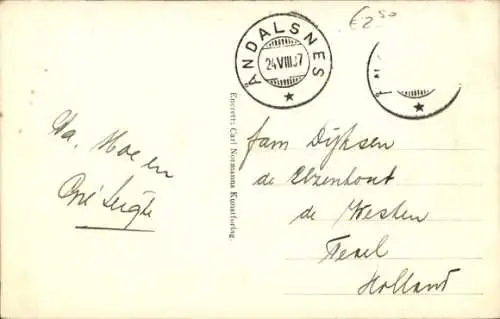 €2 50
ÅNDALSNES
24 VIII 37
Pa, Moe en
Eneret: Carl Normanns Kunstforlag.
fam Dijksen
de Elzenhout
de Westen
Texel
Holland